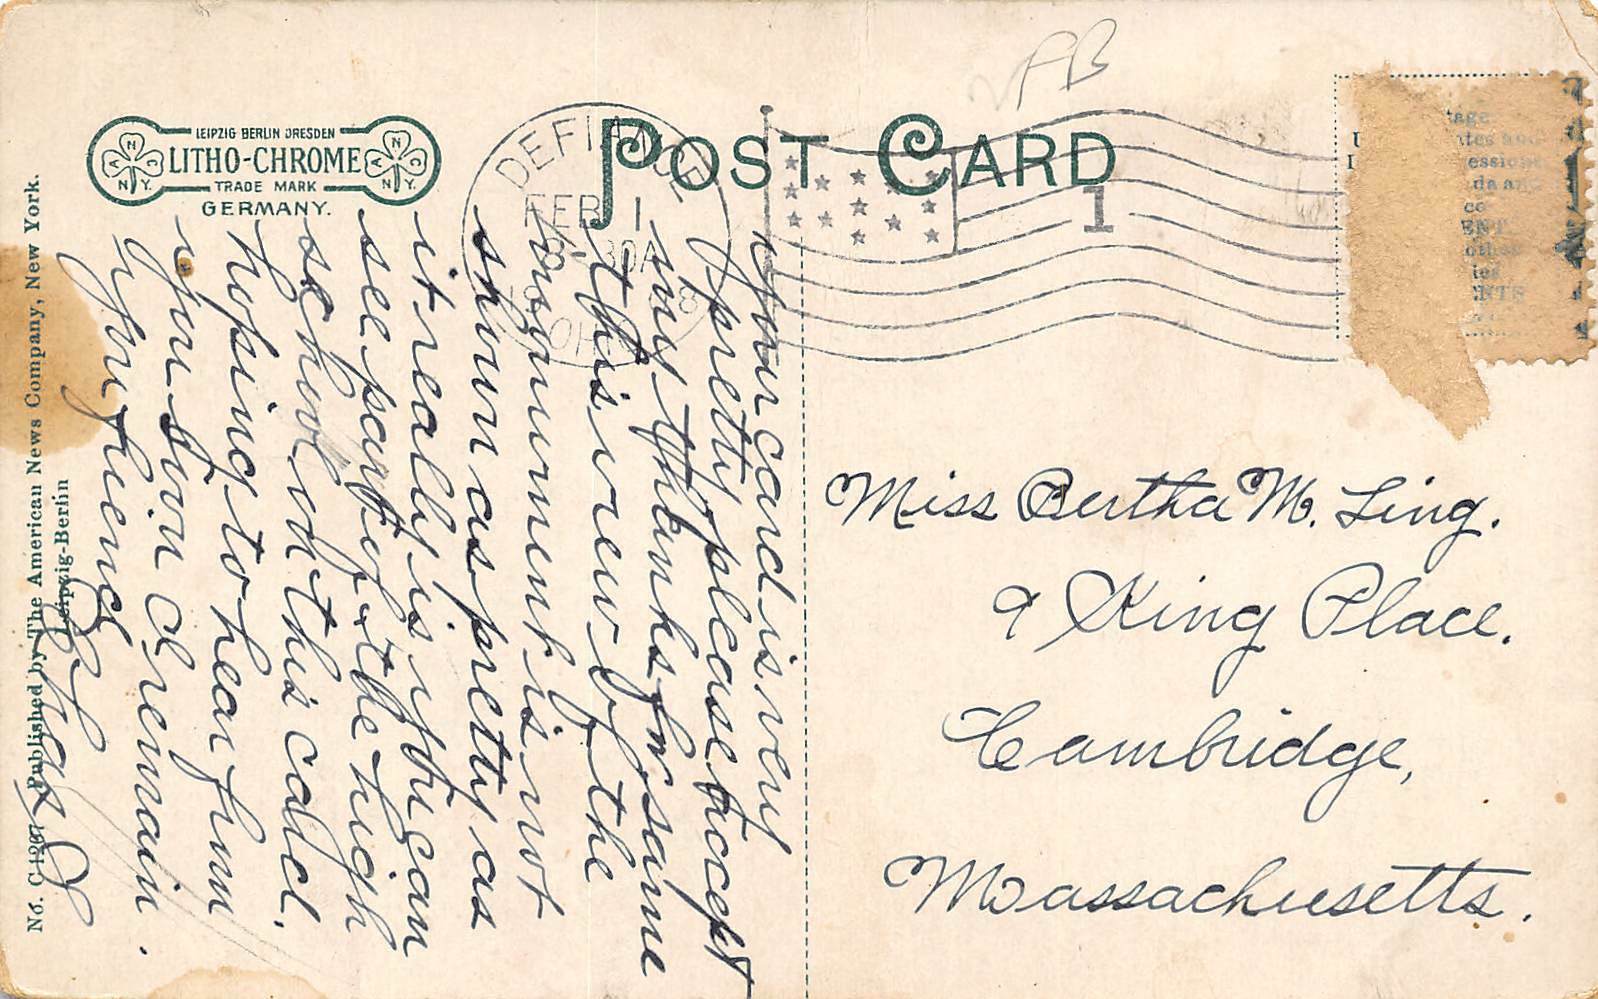 LEIPZIG BERLIN DRESDEN
LITHO-CHROME
TRADE MARK
GERMANY.
A N C
N.Y.
A N C
N.Y.
POST CARD
DEFIANCE
FEB 1
8 30A
OHIO
1
No. C1267 Published by The American News Company, New York.
Leipzig-Berlin
your card is very
pretty please accept
my thanks for same
this view of the
monument is not
shown as pretty as
it really is you can
see part of the high
school on this card.
hoping to hear from
you soon I remain
your friend
Chas
Miss Bertha M. Ling.
9 King Place.
Cambridge,
Massachusetts.